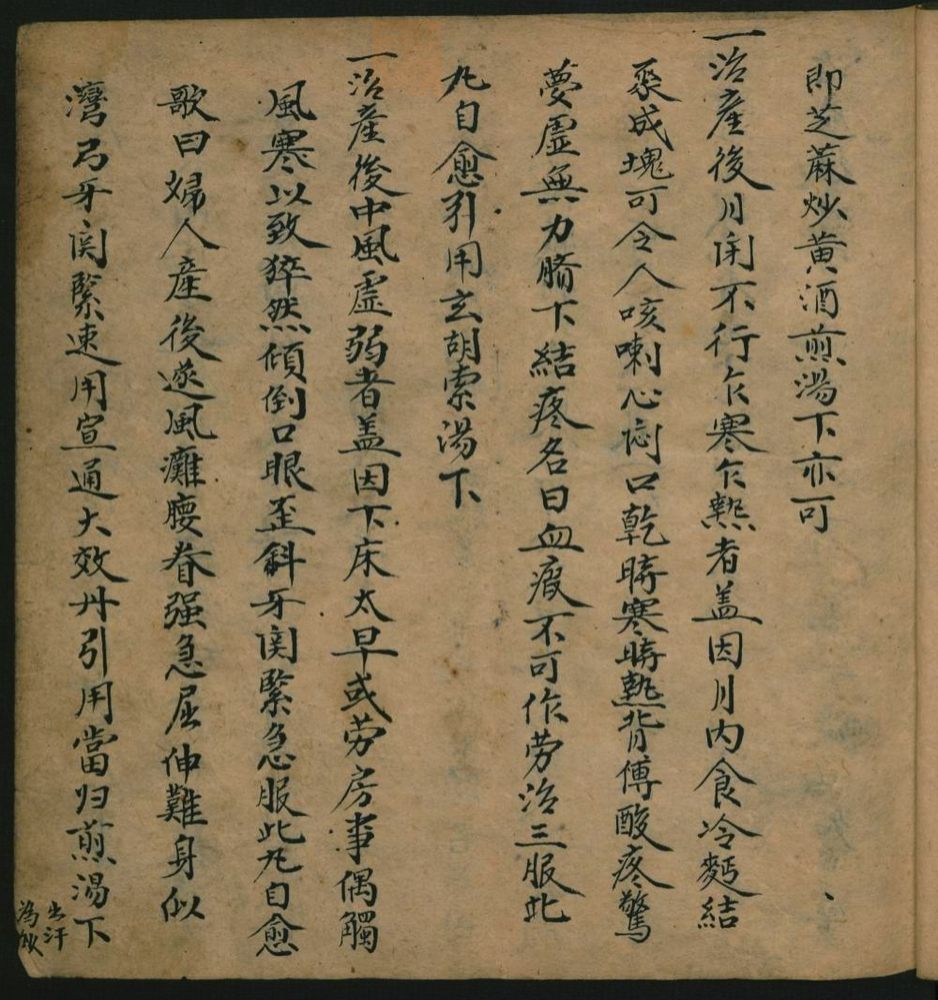 即芝蔴炒黄酒煎湯下亦可
一治産後月閉不行乍寒乍熱者盖因月内食冷麪結
聚成塊可令人咳喇心悶口乾時寒時熱背傅酸疼驚
夢虚無力臍下結疼名曰血瘕不可作劳治三服此
丸自愈引用玄胡索湯下
一治産後中風虚弱者盖因下床太早或劳房事偶觸
風寒以致猝然傾倒口眼歪斜牙関緊急服此丸自愈
歌曰婦人産後逐風灘腰脊强急屈伸難身似
灣弓牙関緊速用宣通大效丹引用當归煎湯下
出汗
為效